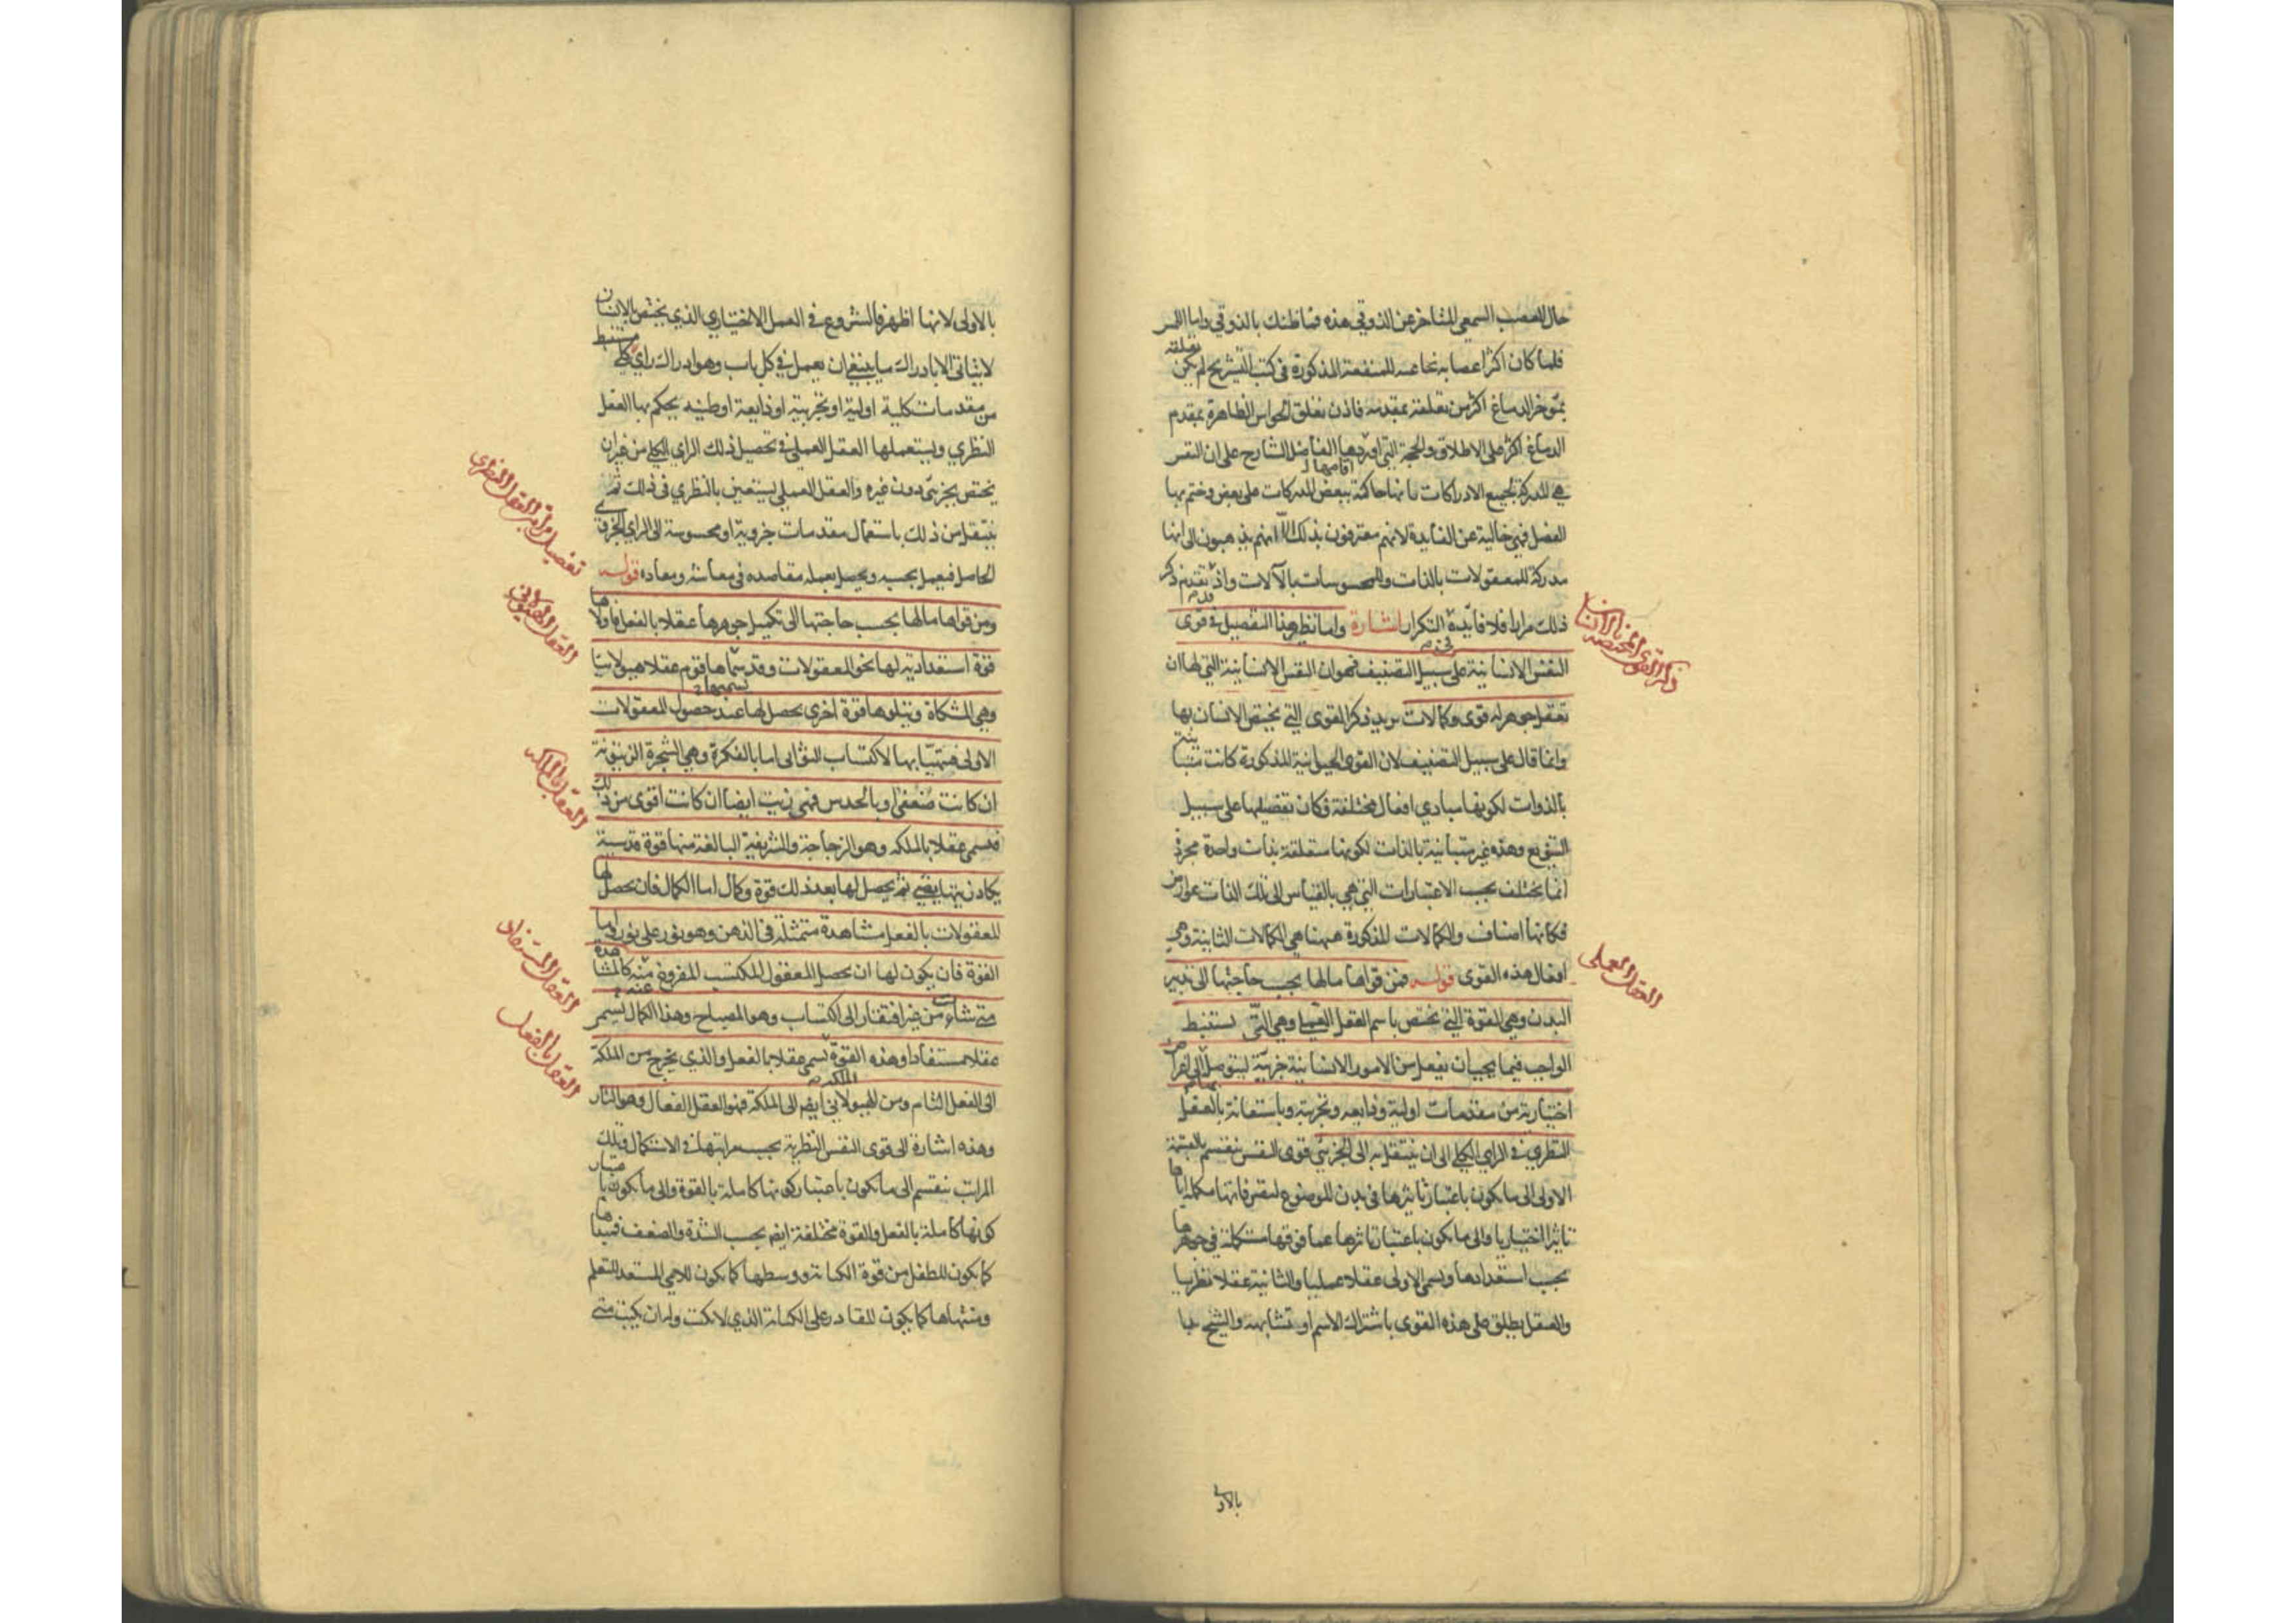 حال العصب السمعي المتاخر عن الذوقي هذه فما ظنك بالذوقي واما اللمس
فلما كان اكثر اعصابه نخاعية للمنفعة المذكورة في كتب التشريح لم يكن تعلقه
بمؤخر الدماغ اكثر من تعلقه بمقدمه فاذن تعلق الحواس الظاهرة بمقدم
الدماغ اكثر على الاطلاق والحجة التي اوردها الفاضل الشارح على ان النفس
اقامها
هي المدركة لجميع الادراكات بانها حاكمة ببعض المدركات على بعض وختم بها
الفصل فهي خالية عن الفايدة لانهم معترفون بذلك الا انهم يذهبون الى انها
مدركة للمعقولات بالذات وللمحسوسات بالآلات واذ تقدم ذكر
ذلك مرارا فلا فائدة في التكرار اشارة واما نظير هذا التفصيل في قوى
النفس الانسانية على سبيل التصنيف فهو ان النفس الانسانية التي لها ان
تعقل جوهر له قوى وكمالات يريد ذكر القوى التي يختص الانسان بها
وانما قال على سبيل التصنيف لان القوى الحيوانية المذكورة كانت متباينة
بالذوات لكونها مبادي افعال مختلفة فكان تفصيلها على سبيل
التنويع وهذه غير متباينة بالذات لكونها متعلقة بذات واحدة مجردة
انما يختلف بحسب الاعتبارات التي هي بالقياس الى تلك الذات عوارض
فكانها اصناف والكمالات المذكورة ههنا هي الكمالات الثانية وهي
افعال هذه القوى قوله فمن قواها ما لها بحسب حاجتها الى تدبير
البدن وهي القوة التي تختص باسم العقل العملي وهي التي تستنبط
الواجب فيما يجب ان يفعل من الامور الانسانية جزئية ليتوصل به الى اغراض
اختيارية من مقدمات اولية وذايعه وتجربية وباستعانة بالعقل
النظري في الراي الكلي الى ان ينتقل به الى الجزئي قوى النفس تنقسم بالقسمة
الاولى الى ما يكون باعتبار تاثيرها في بدن الموضوع لتصرفاتها مكملة اياها
تاثيرا اختياريا والى ما يكون باعتبار تاثرها عما فوقها مستكملة في جوهرها
بحسب استعدادها ويسمى الاولى عقلا عمليا والثانية عقلا نظريا
والعقل يطلق على هذه القوى باشتراك الاسم او تشابهه والشيخ بدا
بالاولى
ذكر القوى المختصة بالانسان
العقل العملي
بالاولى لانها اظهر فالشروع في العمل الاختياري الذي يختص بالانسان
لا يتاتى الا بادراك ما ينبغي ان يعمل في كل باب وهو ادراك راي كلي مستنبط
من مقدمات كلية اولية او تجربية او ذايعة او ظنيه يحكم بها العقل
النظري ويستعملها العقل العملي في تحصيل ذلك الراي الكلي من غير ان
يختص بجزئي دون غيره والعقل العملي يستعين بالنظري في ذلك ثم
ينتقل من ذلك باستعمال مقدمات جزوية او محسوسة الى الراي الجزئي
الحاصل فيعمل بحسبه ويحصل بعمله مقاصده في معاشه ومعاده قوله
ومن قواها ما لها بحسب حاجتها الى تكميل جوهرها عقلا بالفعل فاولاها
قوة استعدادية لها نحو المعقولات وقد سماها قوم عقلا هيولانيا
وهي المشكاة ويتلوها قوة اخرى يحصل لها عند حصول المعقولات
الاولى فيتهيّا بها لاكتساب الثواني اما بالفكرة وهي الشجرة الزيتونة
ان كانت ضعفى او بالحدس فهي زيت ايضا ان كانت اقوى من ذلك
فيسمى عقلا بالملكه وهو الزجاجة والشريفة البالغة منها قوة قدسية
يكاد زيتها يضيء ثم يحصل لها بعد ذلك قوة وكمال اما الكمال فان يحصل لها
المعقولات بالفعل مشاهدة متمثلة في الذهن وهو نور على نور واما
القوة فان يكون لها ان يحصل المعقول المكتسب المفروغ منه كالمشاهدة
متى شاءت من غير افتقار الى اكتساب وهو المصباح وهذا الكمال يسمى
عقلا مستفادا وهذه القوة يسمى عقلا بالفعل والذي يخرج من الملكة
الى الفعل التام ومن الهيولاني ايضا الى الملكة فهو العقل الفعال وهو النار
وهذه اشارة الى قوى النفس النظرية بحسب مراتبها في الاستكمال وتلك
المراتب ينقسم الى ما يكون باعتبار كونها كاملة بالقوة والى ما يكون باعتبار
كونها كاملة بالفعل والقوة مختلفة ايضا بحسب الشدة والضعف فمبداها
كما يكون للطفل من قوة الكتابة ووسطها كما يكون للامي المستعد للتعلم
ومنتهاها كما يكون للقادر على الكتابة الذي لا يكتب وله ان يكتب متى
تفصيل مراتب العقل النظري
العقل الهيولاني
العقل بالملكه
العقل المستفاد
العقل بالفعل